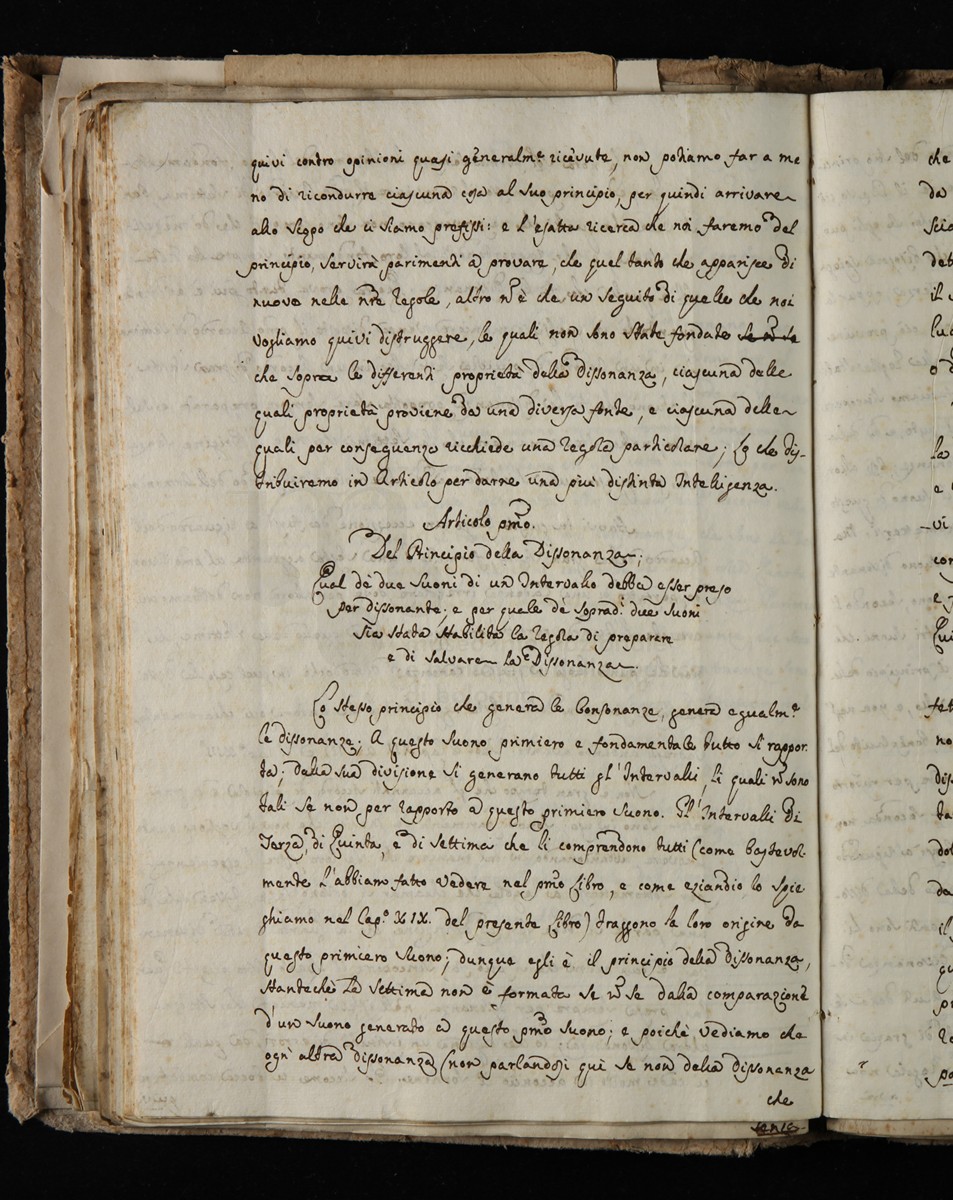 quivi contro opinioni quasi generalm.e ricevute, non potiamo far a me
no di ricondurre ciascuna cosa al suo principio, per quindi arrivare
allo scopo che ci siamo prefissi: e l'esatta ricerca che noi faremo del
principio, servirà parimenti a provare, che quel tanto che apparisce di
nuovo nelle nre regole, altro nō è che un seguito di quelle che noi
vogliamo quivi distruggere, le quali non sono state fondate se nō se
che sopra le differenti proprietà della Dissonanza, ciascuna delle
quali proprietà proviene da una diversa fonte, e ciascuna delle
quali per conseguenza ricchiede una regola particolare; Lo che dis-
tribuiremo in Articolo per darne una più distinta Intelligenza.
Articolo pmo.
Del Principio della Dissonanza;
Qual de due Suoni di un Intervallo debba esser preso
per dissonante; e per quale de soprad.i due suoni
sia stata stabilita la regola di preparere
e di salvare la Dissonanza.
Lo stesso principio che genera le Consonanze, genera egualm.e
le dissonanze; A questo suono primiero e fondamentale tutto si rappor
ta; dalla sua divisione si generano tutti gl'Intervalli, li quali nō sono
tali se non per rapporto a questo primiero suono. Gl'Intervalli di
Terza, di Quinta, e di settima che li comprendono tutti (come bastevol-
mente l'abbiam fatto vedere nel pmo Libro, e come eziandio lo spie
ghiamo nel Cap.o XIX. del presente Libro) traggono la loro origine da
questo primiero suono; dunque egli è il principio della Dissonanza,
stanteché la settima non è formata se nō se dalla comparazione
d'un suono generato a questo pmo suono; e poiché vediamo che
ogni altra dissonanza (non parlandosi qui se non della dissonanza
che